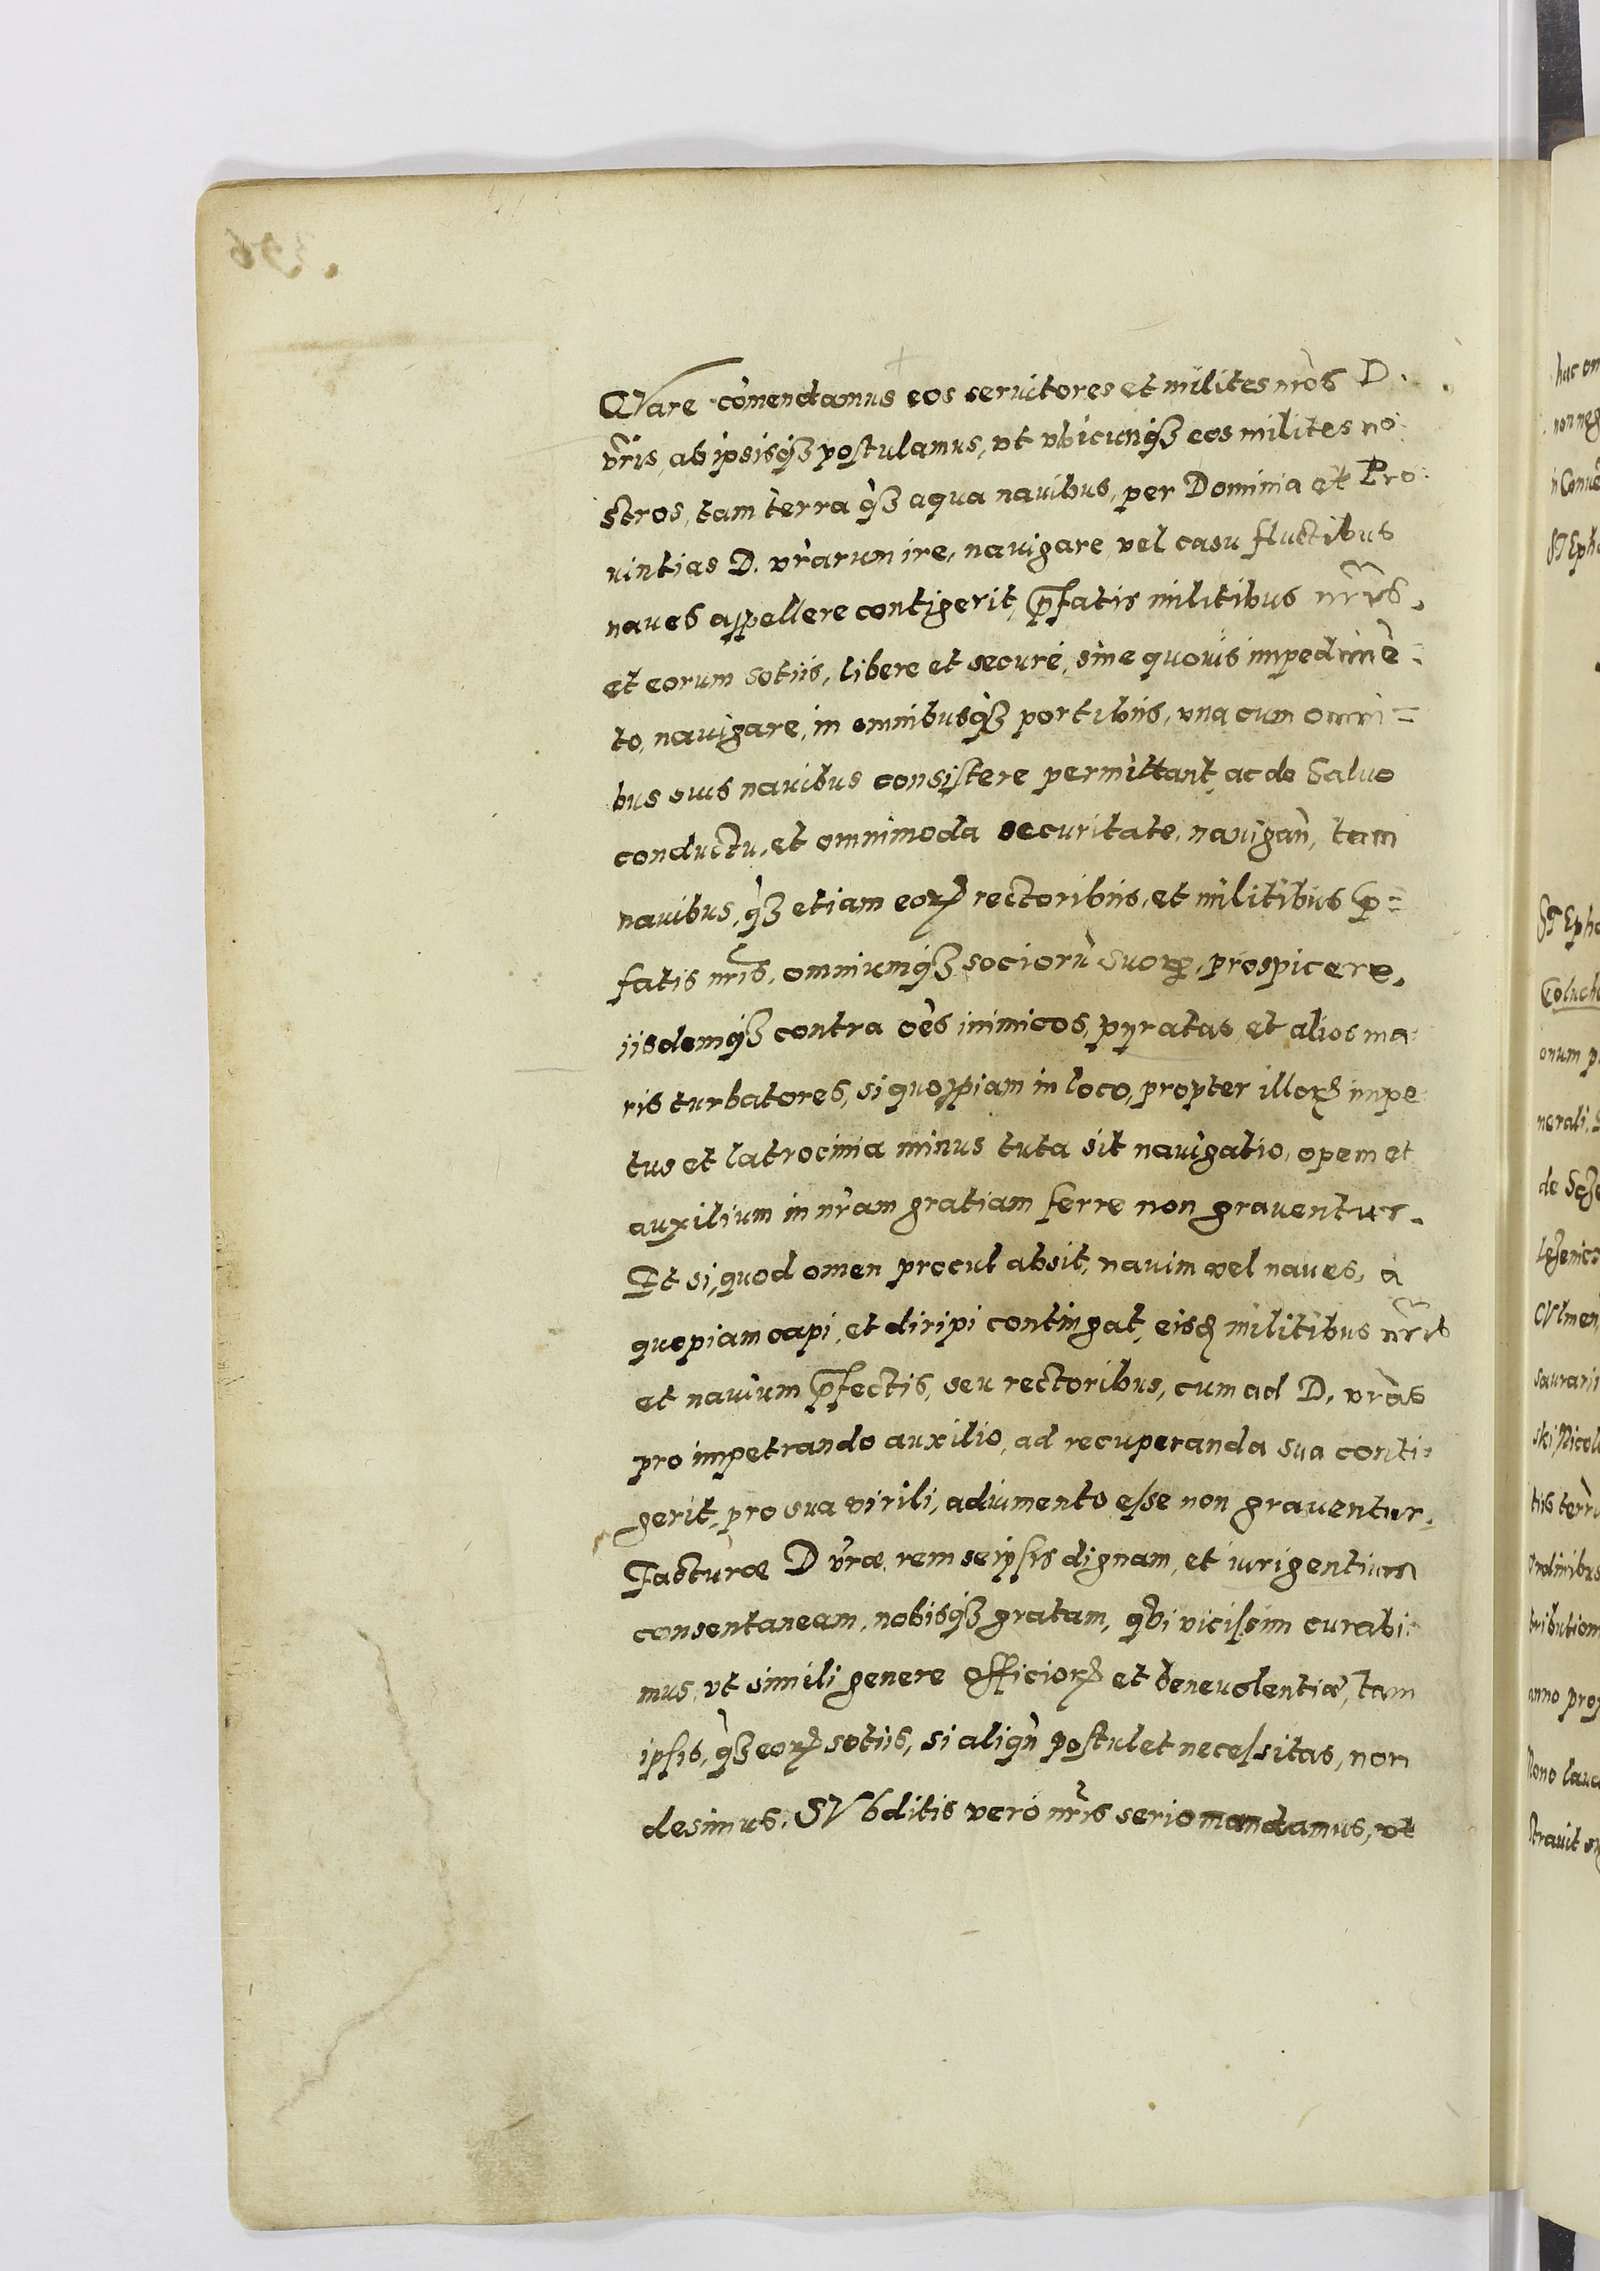 QVare comendamus eos seruitores et milites nros D.
vris, ab ipsisqȝ postulamus, vt vbicunqȝ eos milites no:
stros, tam terra qȝ aqua nauibus, per Dominia et Pro:
uintias D. vrarum ire, nauigare vel casu fluctibus
naues appellere contigerit, pfatis militibus nris,
et eorum sotiis, libere et securè, sine quouis impedimē:
to, nauigare, in omnibusqȝ portibus, vna cum omni=
bus suis nauibus consistere permittant, ac de Saluo
conductu, et omnimoda securitate, nauigan, tam
nauibus, qȝ etiam eorꝝ rectoribus, et militibus p=
fatis nris, omniumqȝ sociorū suorꝝ, prospicere,
iisdemqȝ contra oēs inimicos, pyratas, et alios ma:
ris turbatores, si quospiam in loco, propter illorꝝ impe
tus et latrocinia minus tuta sit nauigatio, opem et
auxilium in nram gratiam ferre non grauentur.
Et si, quod omen procul absit, nauim vel naues, à
quopiam capi, et diripi contingat, eisdꝫ militibus nris
et nauium pfectis, seu rectoribus, cum ad D. vras
pro impetrando auxilio, ad recuperanda sua conti:
gerit, pro sua virili, adiumento esse non grauentur.
Facturæ D vræ rem seipsis dignam, et iuri gentium
consentaneam, nobisqȝ gratam, qvi vicissim curabi:
mus, vt simili genere officiorꝝ et beneuolentiæ, tam
ipsis, qȝ eorꝝ sotiis, si aliqn postulet necessitas, non
desimus. SVbditis verò nris serio mandamus, vt